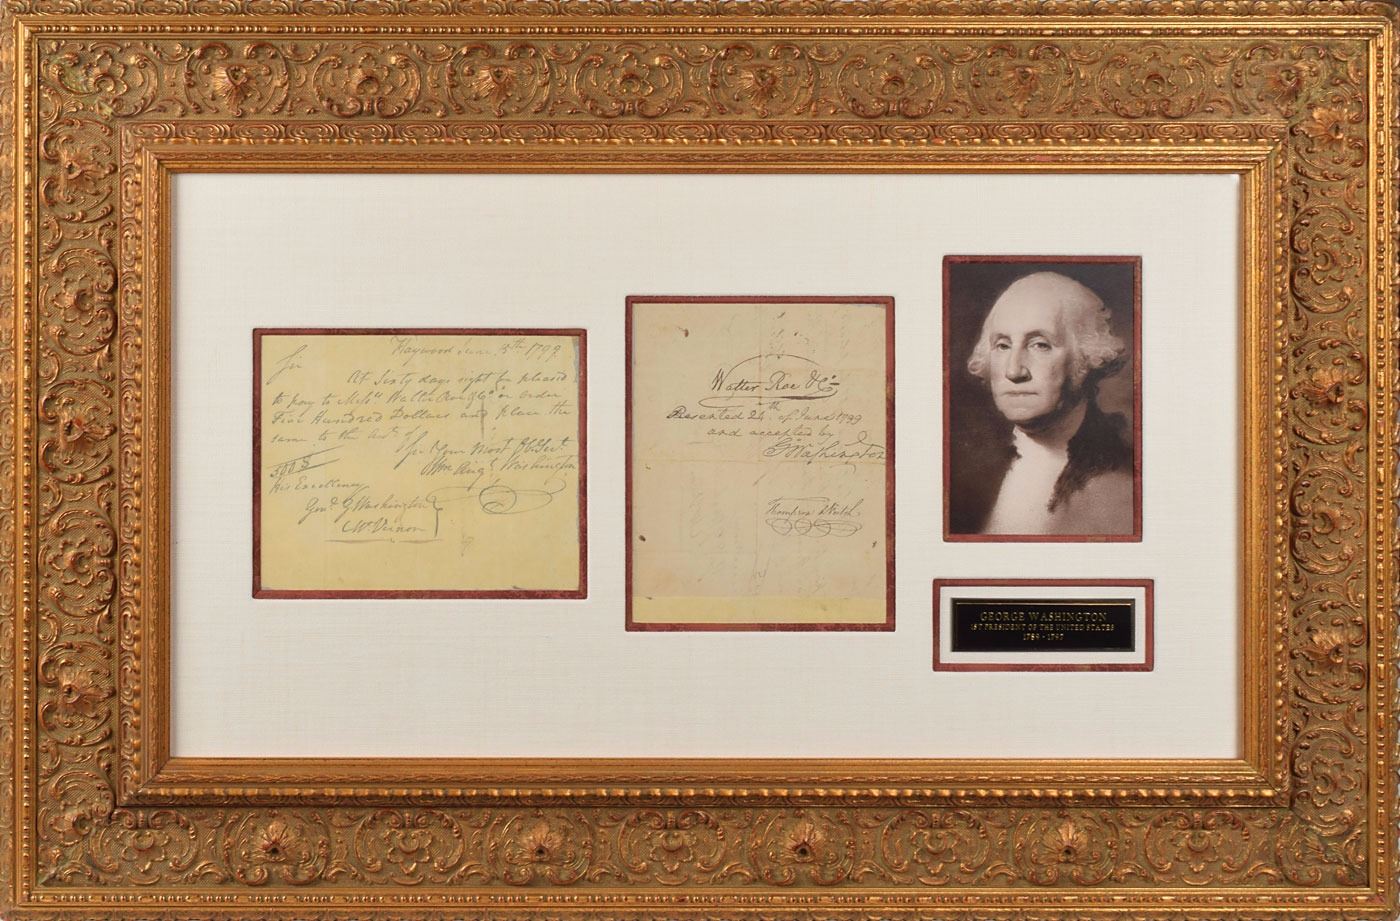 Haywood June 5th 1799
Sir
At Sixty days sight be pleased
to pay to Walter Roe & Co or order
Five Hundred Dollars and place the
same to the of
Sir Your Most Ob. Servt
500$
Washington
His Excellency
Genl. G Washington
Mt. Vernon
Walter Roe & Co
Presented 24th of June 1799
and accepted by
G Washington
GEORGE WASHINGTON
1ST PRESIDENT OF THE UNITED STATES
1789 - 1797